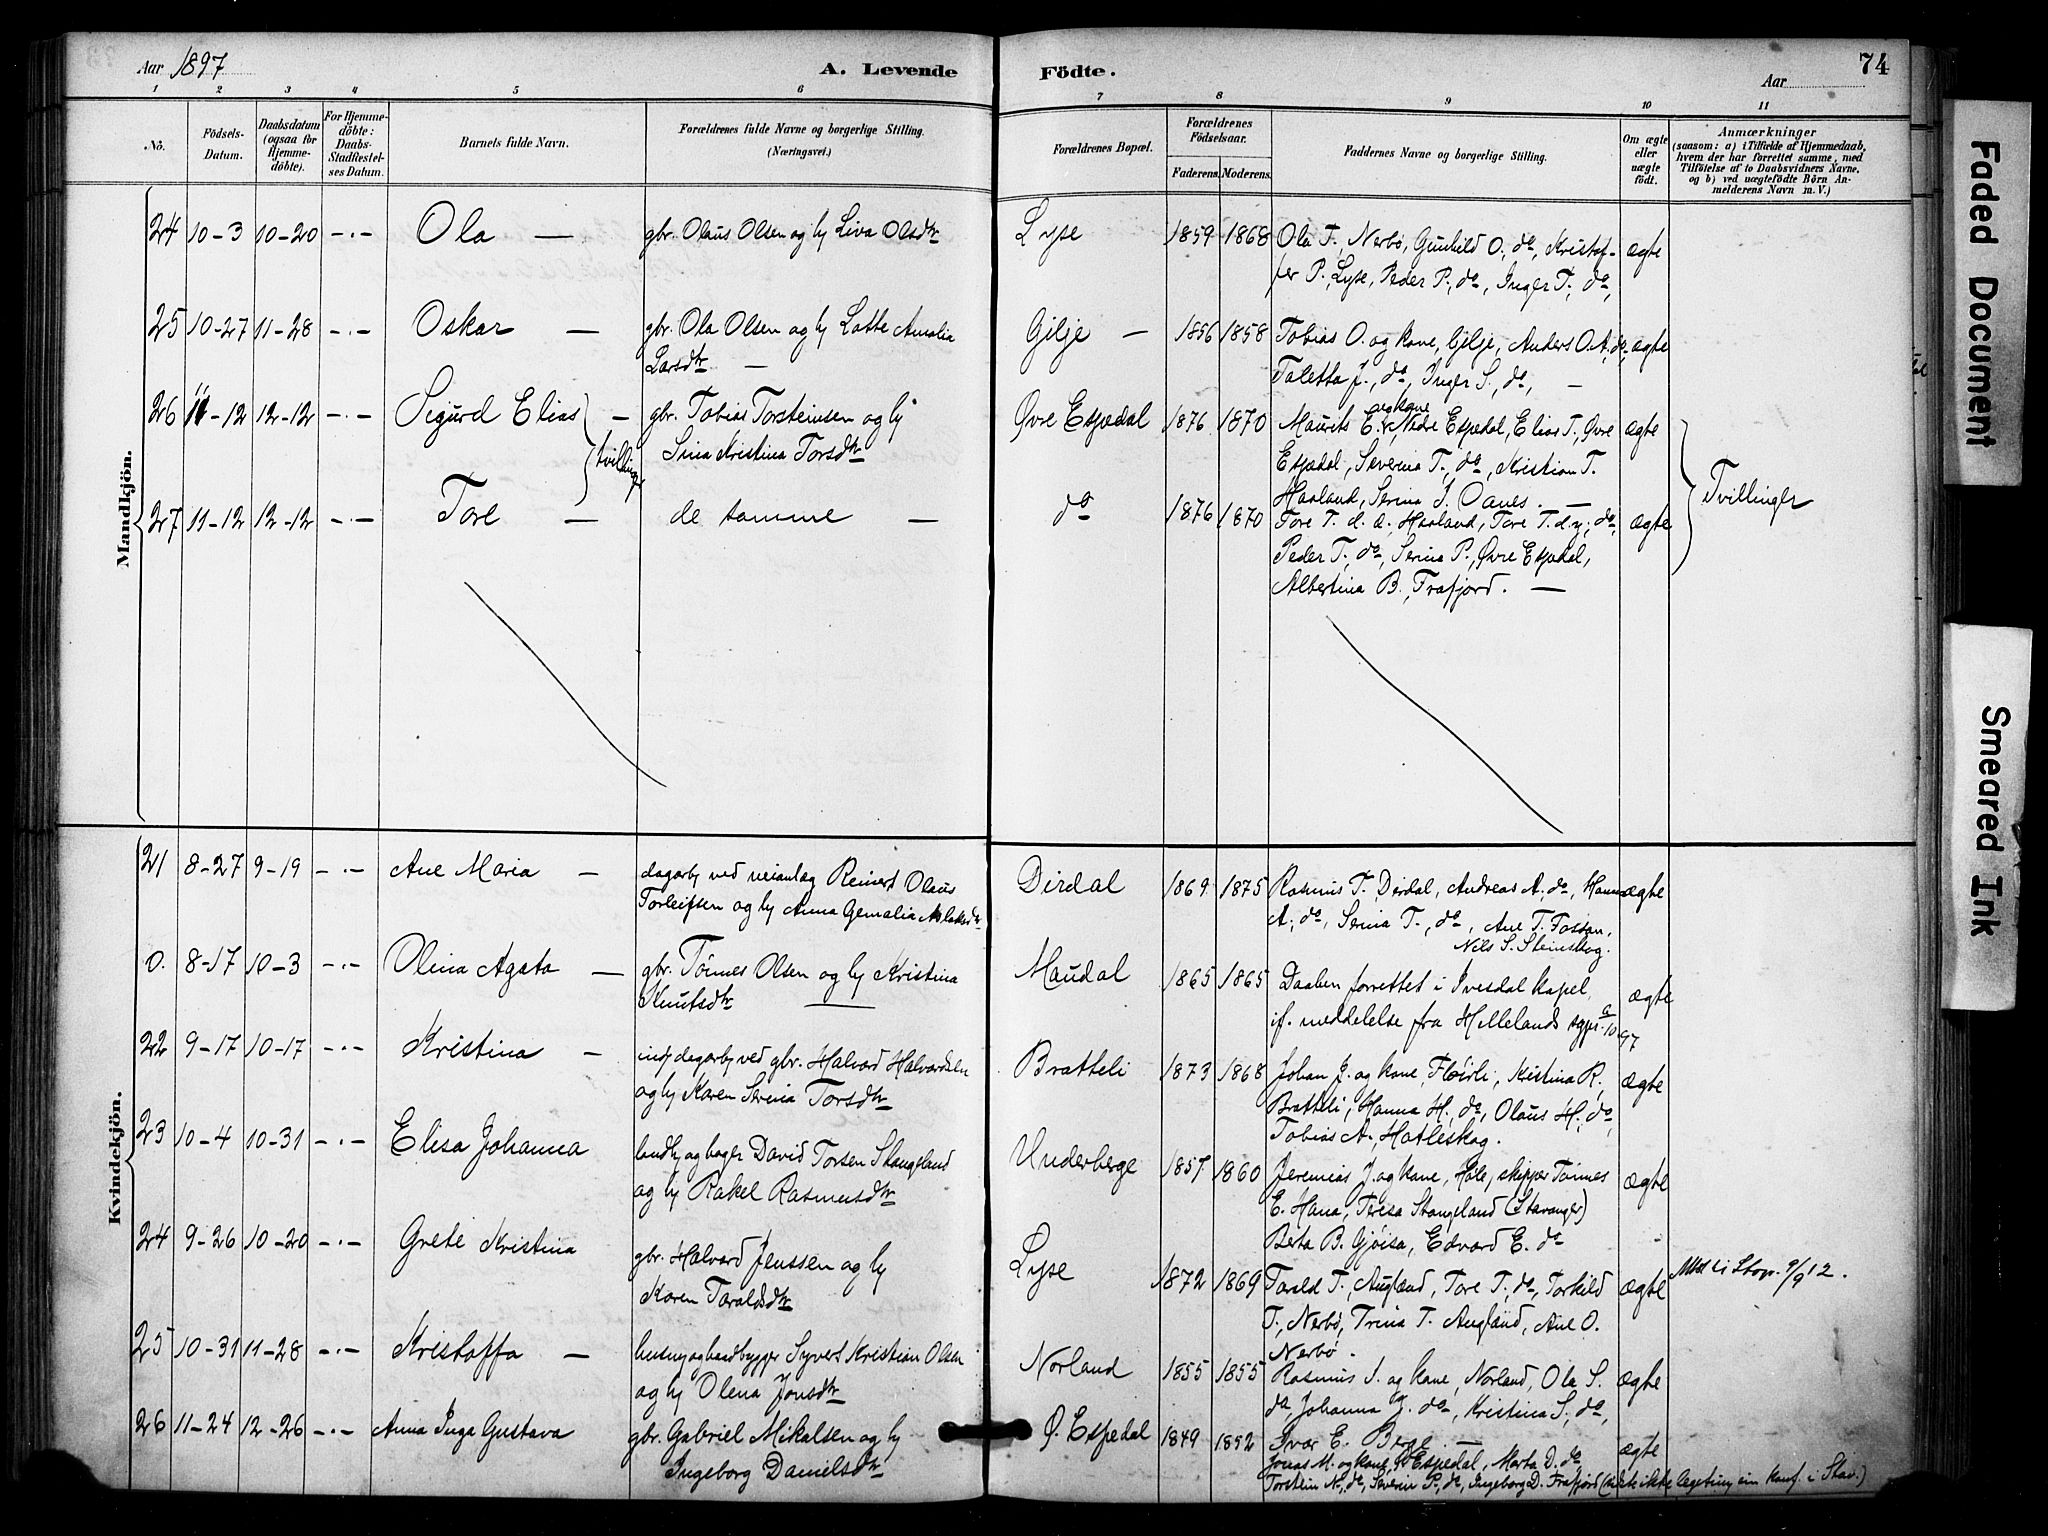 Aar 1897
A. Levende
Födte.
Aar
74
1 2 3 4 5 6 7 8 9 10 11
No.
Födsels-
Datum.
Daabsdatum
(ogsaa for
Hjemme-
döbte).
For Hjemme-
döbte:
Daabs-
Stadfæstel-
ses Datum.
Barnets fulde Navn.
Forældrenes fulde Navne og borgerlige Stilling.
(Næringsvei.)
Forældrenes Bopæl.
Forældrenes
Födselsaar.
Faderens. Moderens.
Faddernes Navne og borgerlige Stilling.
Om ægte
eller
uægte
födt.
Anmærkninger
(saasom: a) i Tilfælde af Hjemmedaab,
hvem der har forrettet samme, med
Tilföielse af to Daabsvidners Navne.
og b) ved uægtefödte Börn An-
melderens Navn m. V.)
Mandkjön.
24 10-3 10-20 -·- Ola — gbr. Olaus Olsen og hu Liva Olsdtr Lyse 1859 1868 Ola T., Nerbø, Gunhild O., do, Kristof-
fer P., Lyse, Peder P., do, Inger T., do, ægte
25 10-27 11-28 -·- Oskar — gbr. Ola Olsen og hu Lotte Amalia
Larsdtr — Gilje — 1856 1858 Tobias O. og kone, Gilje, Anders O.A., do,
Taletta J., do, Inger S., do, — ægte
26 11-12 12-12 -·- Sigurd Elias — gbr. Tobias Torsteinsen og hu
Sina Kristina Torsdtr Øvre Espedal 1876 1870 Maurits E. og kone, Nedre Espedal, Elias T., Øvre
Espedal, Severina T., do, Kristian T.
Haaland, Serina J. Oanes. — ægte
tvillinger
27 11-12 12-12 -·- Tore — de samme — do 1876 1870 Tore T. d. æ., Haaland, Tore T. d. y., do,
Peder T., do, Serina P., Øvre Espedal,
Albertina B., Frafjord. — ægte
Tvillinger
Kvindekjön.
21 8-27 9-19 -·- Ane Maria — dagarb. ved veianlæg Reinert Olaus
Torleifsen og hu Anna Gemalia Aslaksdtr Dirdal 1869 1875 Rasmus T. Dirdal, Andreas A., do, Hanna
A., do, Serina T., do, Ane T. Fossan,
Nils S. Steinskog. ægte
0. 8-17 10-3 -·- Olina Agata — gbr. Tönnes Olsen og hu Kristina
Knutsdtr Maudal 1865 1865 Daaben forrettet i Ivesdal kapel,
if. meddelelse fra Hellelands sgpr. 9/10 97 ægte
22 9-17 10-17 -·- Kristina — dagarb. ved gbr. Halvard Halvardsen
og hu Karen Serina Torsdtr Bratteli 1873 1868 Johan J. og kone, Flöirli, Kristina R.,
Bratteli, Hanna H., do, Olaus H., do,
Tobias A., Hatleskog. ægte
23 10-4 10-31 -·- Elisa Johanna landh. og bager David Torsen Stangeland
og hu Rakel Rasmusdtr Underberge 1857 1860 Jeremias J. og kone, Høle, skipper Tönnes
E. Hana, Teresa Stangeland (Stavanger)
Berta B. Gjöisa, Edvard E. do ægte
24 9-26 10-20 -·- Grete Kristina gbr. Halvard Jenssen og hu
Karen Taraldsdtr Lyse 1872 1869 Tarald T., Augland, Tore T., do, Torkild
T., Nerbø, Trina T. Augland, Ane O.
Nerbø. ægte 9/9 12.
25 10-31 11-28 -·- Kristoffa — husm. og baadbygger Syvert Kristian Olsen
og hu Olena Jonsdtr Norland 1855 1855 Rasmus S. og kone, Norland, Ola S.
do, Johanna J. do, Kristina S., do,
Ivar E. Berge. — ægte
26 11-24 12-26 -·- Anna Inga Gustava gbr. Gabriel Mikalsen og hu
Ingeborg Danielsdtr Ø. Espedal 1849 1852 Jonas M. og kone, Espedal, Marta D. do,
Torstein N., do, Severin P., do, Ingeborg D. Frafjord ægte
Faded Document
Smeared Ink